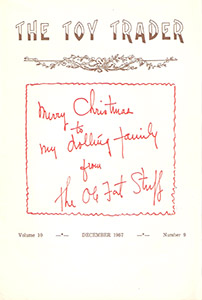 THE TOY TRADER
Merry Christmas
to
my dolling family
from
The Old Fat Stuff
Volume 19 —*— DECEMBER 1967 —*— Number 9